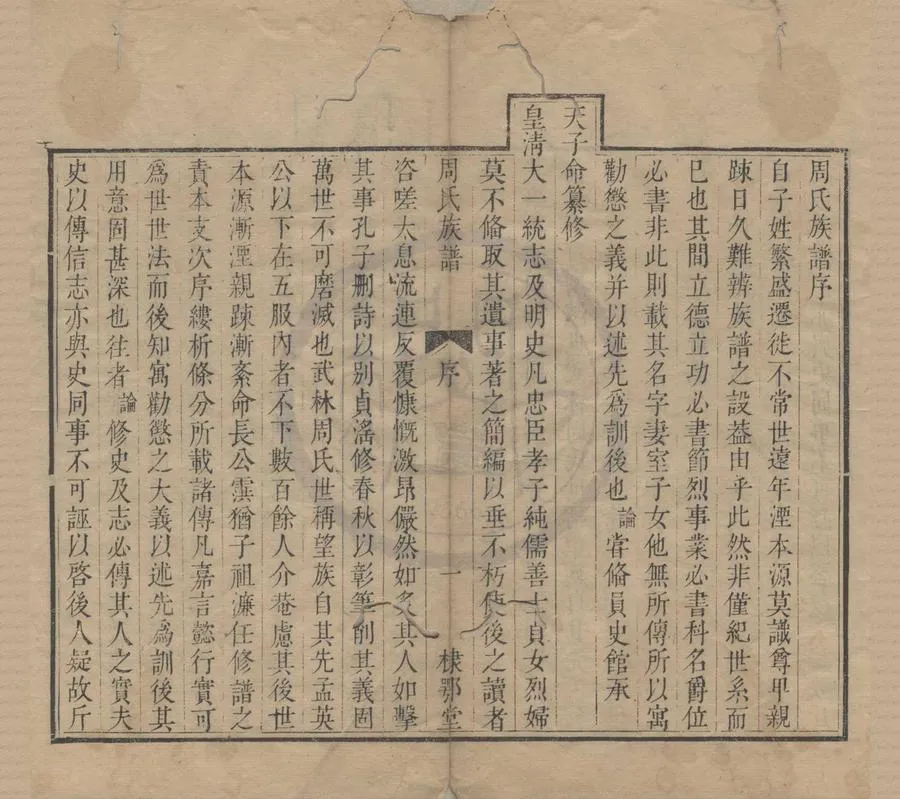 周氏族譜序
自子姓繁盛遷徙不常世遠年湮本源莫識尊卑親
踈日久難辨族譜之設葢由乎此然非僅紀世系而
巳也其間立德立功必書節烈事業必書科名爵位
必書非此則載其名字妻室子女他無所傳所以寓
勸懲之義并以述先爲訓後也論嘗備員史館承
天子命纂修
皇淸大一統志及明史凡忠臣孝子純儒善士貞女烈婦
莫不備取其遺事著之簡編以垂不朽使後之讀者
周氏族譜 序 一 棣鄂堂
咨嗟太息流連反覆慷慨激昂儼然如見其人如擊
其事孔子删詩以别貞滛修春秋以彰筆削其義固
萬世不可磨滅也武林周氏世稱望族自其先孟英
公以下在五服內者不下數百餘人介菴慮其後世
本源漸湮親踈漸紊命長公雲猶子祖濂任修譜之
責本支次序縷析條分所載諸傳凡嘉言懿行實可
爲世世法而後知寓勸懲之大義以述先爲訓後其
用意固甚深也往者論修史及志必傳其人之實夫
史以傳信志亦與史同事不可誣以啓後人疑故斤